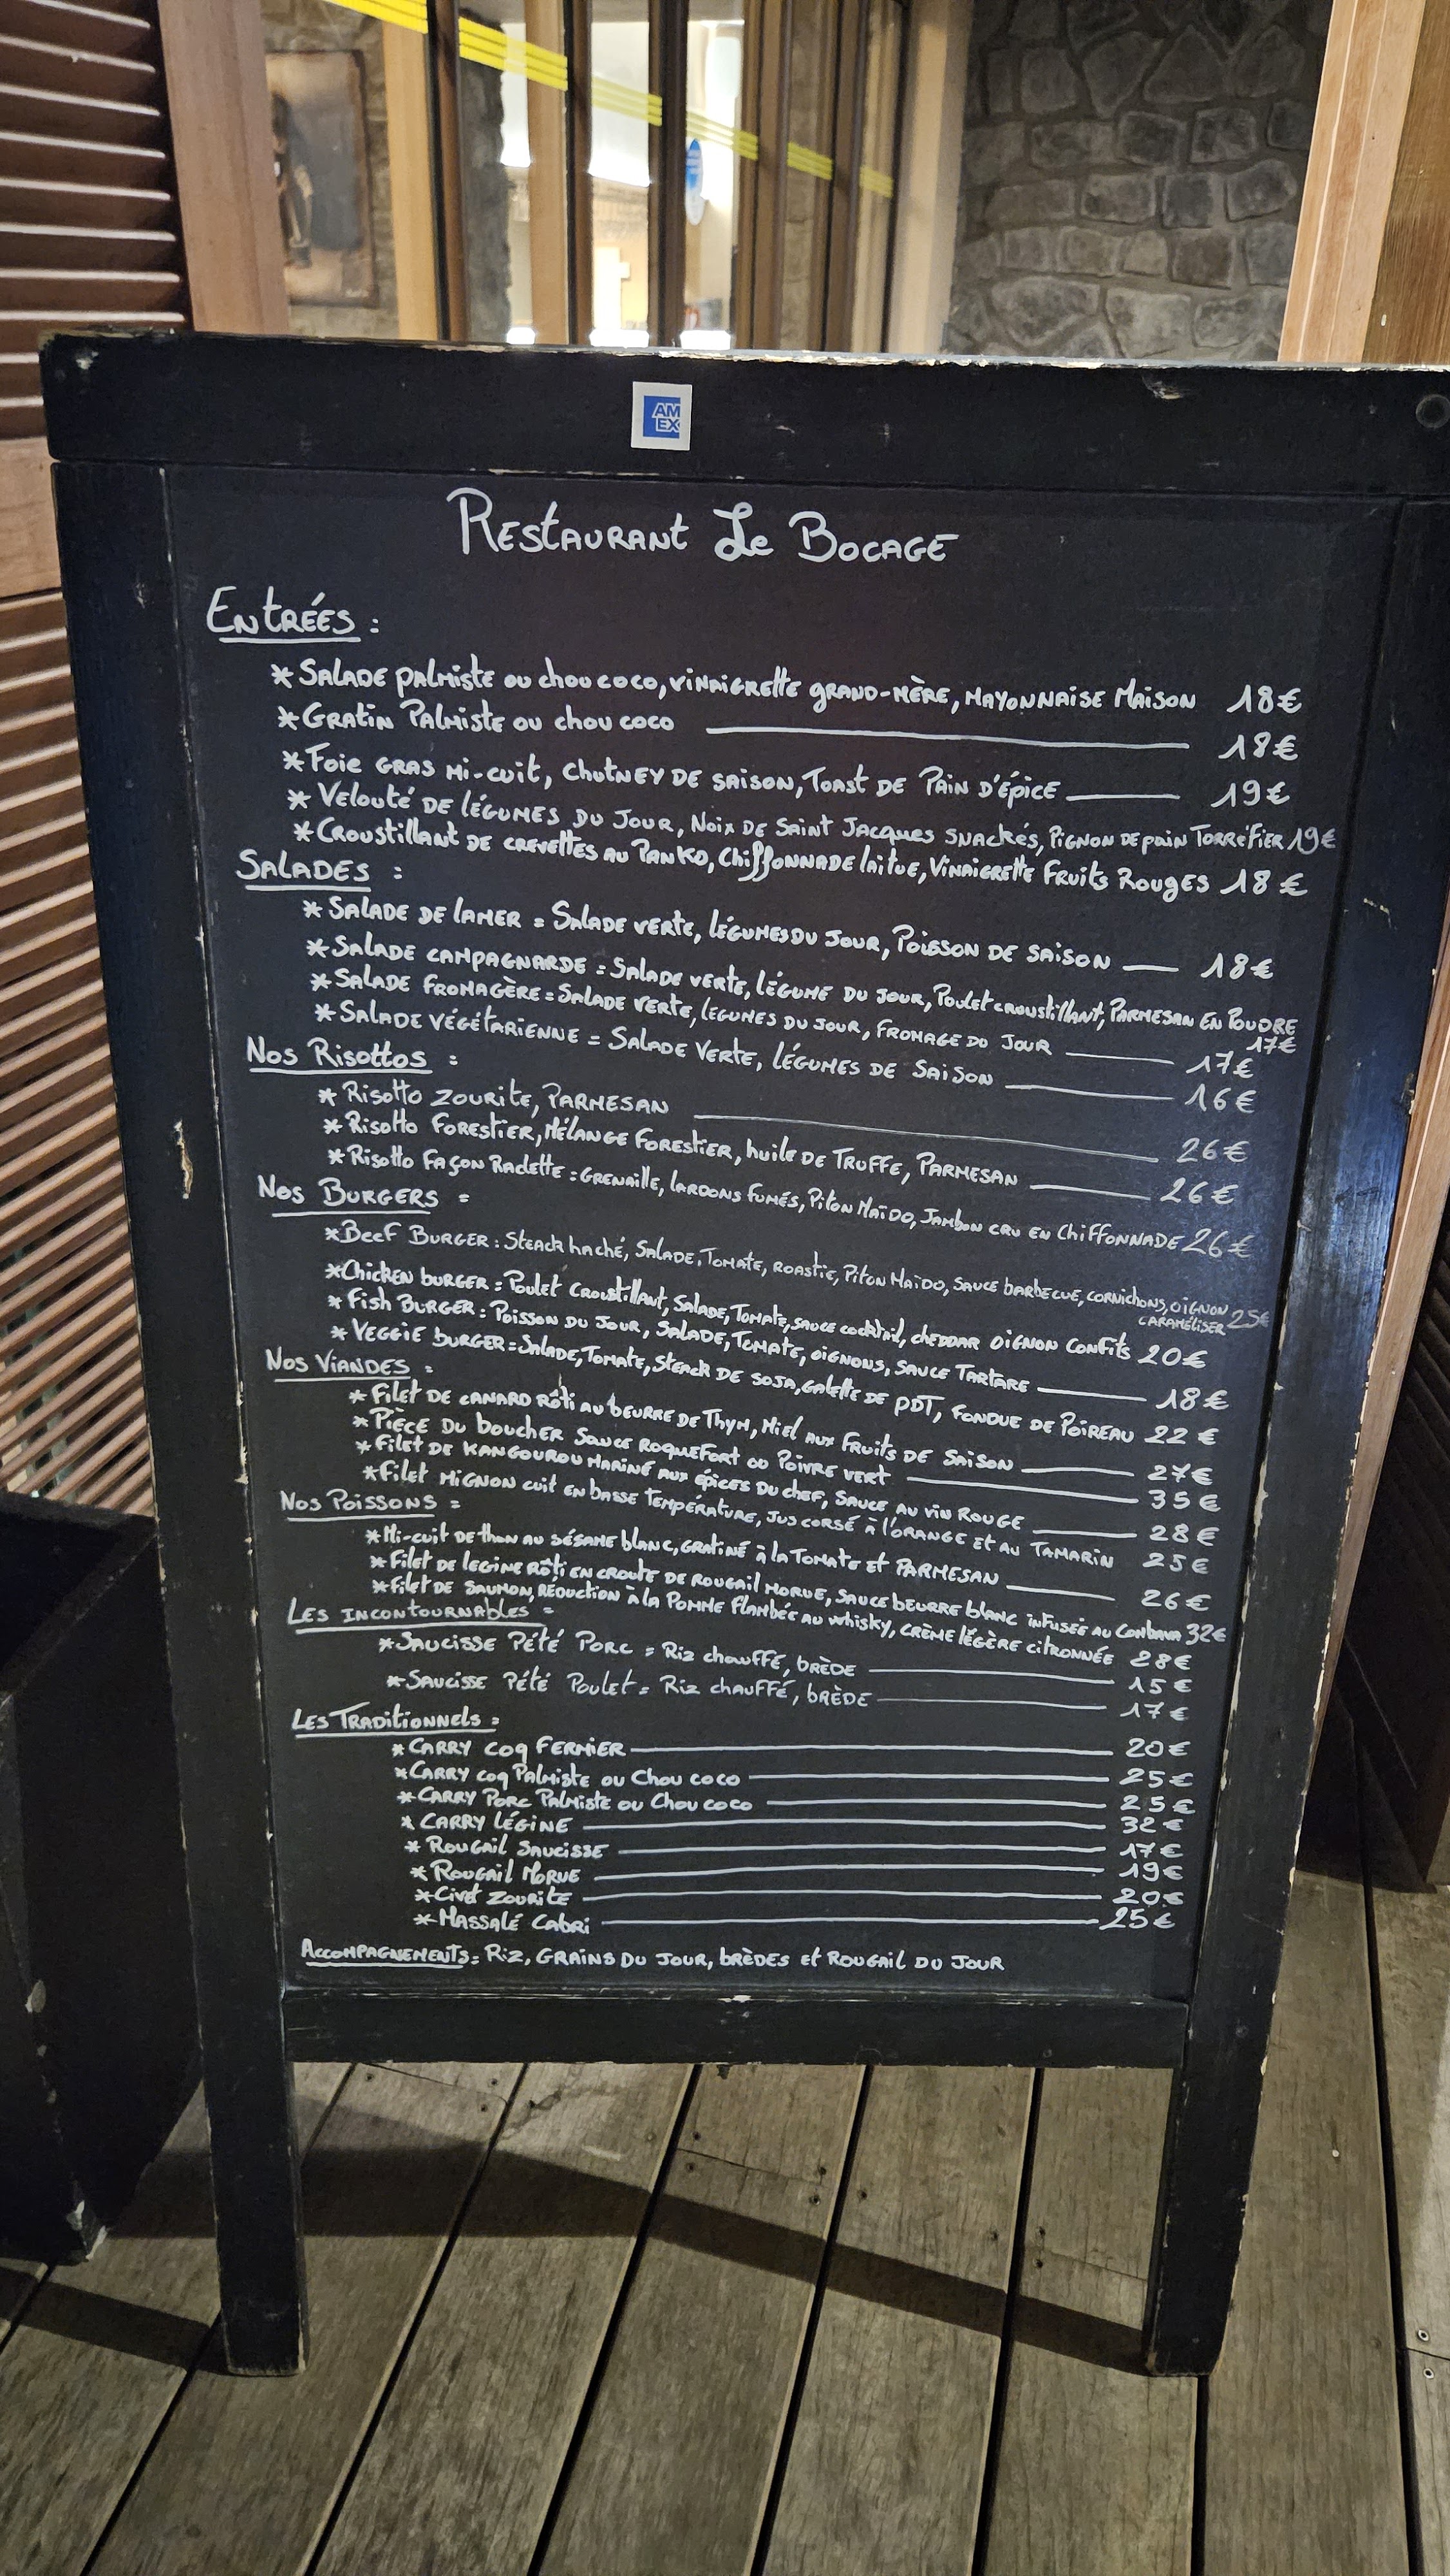 AM
EX
Restaurant Le Bocage
Entrées :
* Salade palmiste ou chou coco, vinaigrette grand-mère, mayonnaise maison 18€
* Gratin Palmiste ou chou coco 18€
* Foie gras mi-cuit, chutney de saison, Toast de Pain d'épice 19€
* Velouté de légumes du jour, Noix de Saint Jacques snackés, Pignon de pain Torréfier 19€
* Croustillant de crevettes au Panko, chiffonnade laitue, vinaigrette Fruits Rouges 18€
Salades :
* Salade de la mer = Salade verte, légumes du jour, Poisson de saison 18€
* Salade campagnarde = Salade verte, légume du jour, Poulet croustillant, Parmesan en poudre
17€
* Salade fromagère = Salade verte, légumes du jour, fromage du jour 17€
* Salade végétarienne = Salade verte, légumes de saison 16€
Nos Risottos :
* Risotto zourite, Parmesan 26€
* Risotto Forestier, mélange forestier, huile de Truffe, Parmesan 26€
* Risotto Façon Raclette : grenaille, lardons fumés, Piton Maïdo, Jambon cru en chiffonnade 26€
Nos Burgers :
* Beef Burger : Steack haché, salade, tomate, roastie, Piton Maïdo, sauce barbecue, cornichons, oignon
caraméliser 25€
* Chicken burger : Poulet croustillant, salade, Tomate, sauce cocktail, cheddar oignon confits 20€
* Fish Burger : Poisson du jour, Salade, Tomate, oignons, sauce Tartare 18€
* Veggie burger = Salade, Tomate, Steack de soja, galette de PDT, fondue de poireau 22€
Nos Viandes :
* Filet de canard rôti au beurre de Thym, Miel aux fruits de saison 27€
* Pièce du boucher sauce roquefort ou poivre vert 35€
* Filet de kangourou mariné aux épices du chef, sauce au vin rouge 28€
* Filet mignon cuit en basse température, jus corsé à l'orange et au tamarin 25€
Nos Poissons :
* Mi-cuit de thon au sésame blanc, gratiné à la tomate et parmesan 26€
* Filet de légine rôti en croute de rougail morue, sauce beurre blanc infusée au combava 32€
* Filet de saumon, réduction à la pomme flambée au whisky, crème légère citronnée 28€
Les Incontournables =
* Saucisse Pété Porc = Riz chauffé, brède 15€
* Saucisse Pété Poulet = Riz chauffé, brède 17€
Les Traditionnels =
* Carry coq fermier 20€
* Carry coq Palmiste ou Chou coco 25€
* Carry Porc Palmiste ou Chou coco 25€
* Carry légine 32€
* Rougail Saucisse 17€
* Rougail Morue 19€
* Civet Zourite 20€
* Massalé Cabri 25€
Accompagnements : Riz, grains du jour, brèdes et rougail du jour